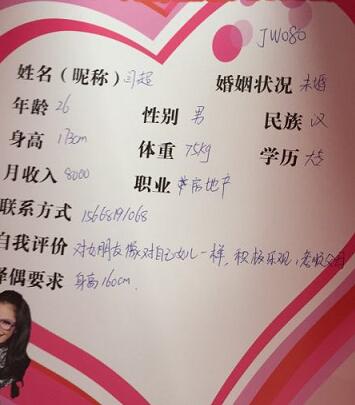 JW080
姓名（昵称）闫超 婚姻状况 未婚
年龄 26 性别 男 民族 汉
身高 173cm 体重 75kg 学历 大专
月收入 8000 职业 房地产
联系方式 15668191068
自我评价 对女朋友像对自己女儿一样，积极乐观，孝顺父母
择偶要求 身高160cm.